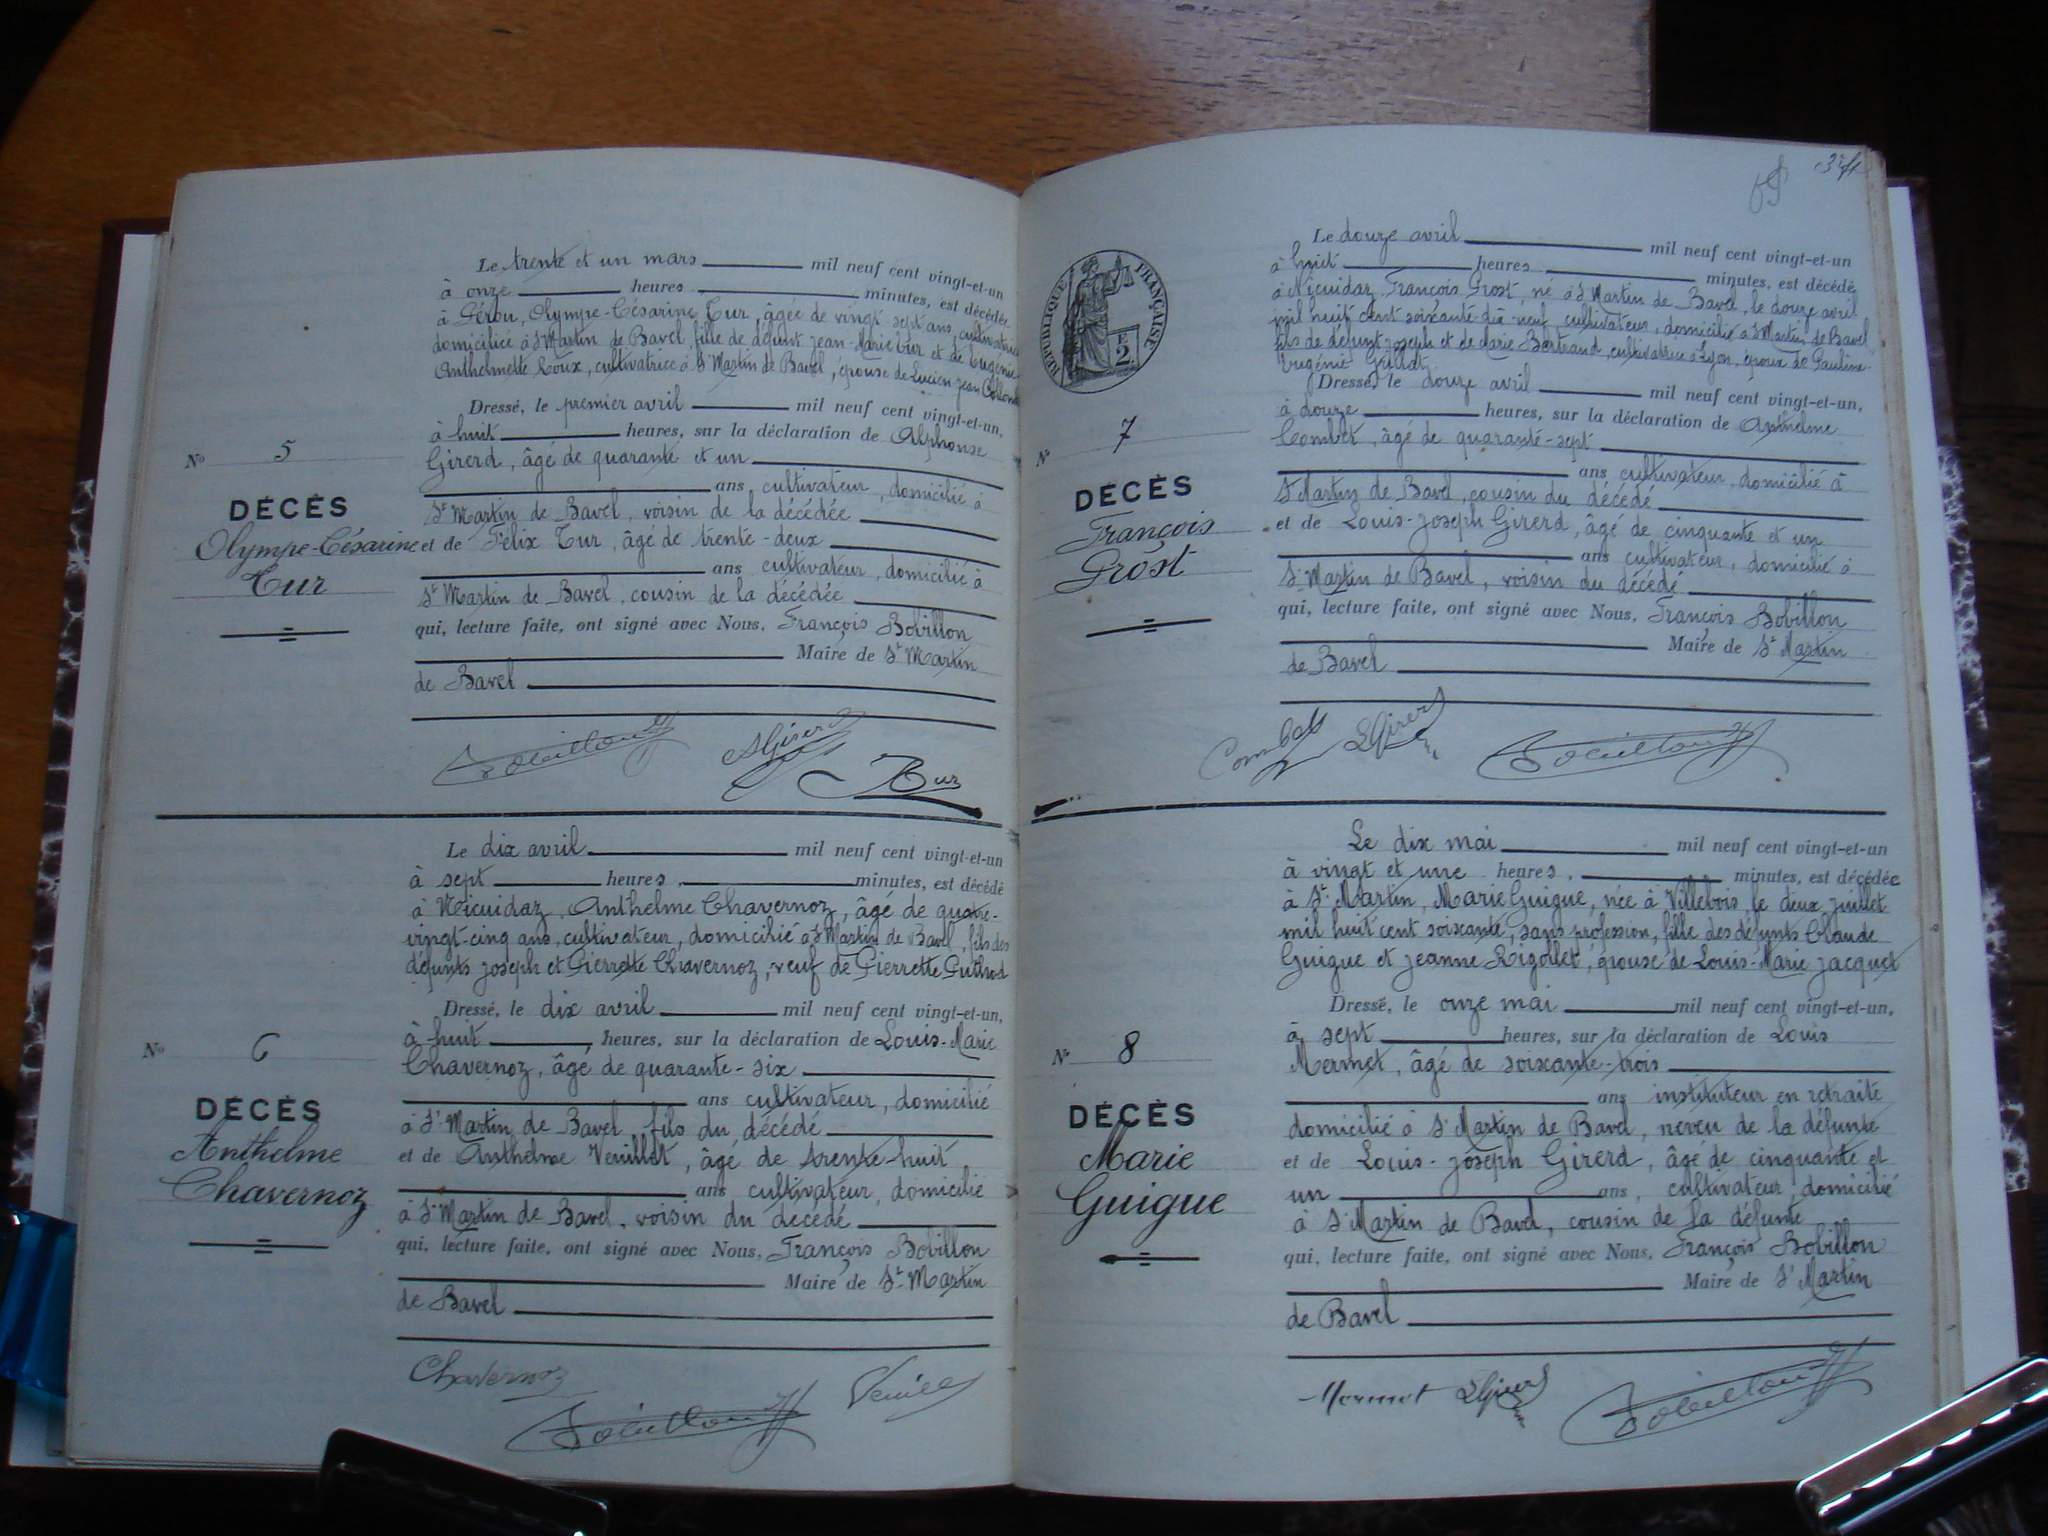 Le trente et un mars mil neuf cent vingt-et-un
à onze heures minutes, est décédée
à Gérou, Olympe-Césarine Tur, âgée de vingt sept ans, cultivatrice
domiciliée à St Martin de Bavel, fille de défunt jean-Marie Tur et de Eugénie
Anthelmette Roux, cultivatrice à St Martin de Bavel, épouse de Lucien jean
Dressé, le premier avril mil neuf cent vingt-et-un,
à huit heures, sur la déclaration de Alphonse
Girerd, âgé de quarante et un
ans cultivateur, domicilié à
St Martin de Bavel, voisin de la décédée
et de Félix Tur, âgé de trente-deux
ans cultivateur, domicilié à
St Martin de Bavel, cousin de la décédée
qui, lecture faite, ont signé avec Nous, François Bobillon
Maire de St Martin
de Bavel
No 5
DÉCÈS
Olympe-Césarine
Tur
Bobillon AGirerd Tur
Le dix avril mil neuf cent vingt-et-un
à sept heures, minutes, est décédé
à Nicuidaz, Anthelme Chavernoz, âgé de quatre-
vingt-cinq ans, cultivateur, domicilié à St Martin de Bavel, fils des
défunts joseph et Pierrette Chavernoz, veuf de Pierrette Guthod
Dressé, le dix avril mil neuf cent vingt-et-un,
à huit, heures, sur la déclaration de Louis-Marie
Chavernoz, âgé de quarante-six
ans cultivateur, domicilié
à St Martin de Bavel, fils du décédé
et de Anthelme Venillet, âgé de trente-huit
ans cultivateur, domicilié
à St Martin de Bavel, voisin du décédé
qui, lecture faite, ont signé avec Nous, François Bobillon
Maire de St Martin
de Bavel
No 6
DÉCÈS
Anthelme
Chavernoz
Chavernoz Bobillon
RÉPUBLIQUE FRANÇAISE
2
Le douze avril mil neuf cent vingt-et-un
à huit heures minutes, est décédé
à Nicuidaz François Grost, né à St Martin de Bavel, le douze avril
mil huit cent soixante-dix-neuf cultivateur, domicilié à St Martin de Bavel
fils de défunt joseph et de Marie Bertrand, cultivatrice à Lyon, époux de Pauline-
Eugénie Gullat.
Dressé, le douze avril mil neuf cent vingt-et-un,
à douze heures, sur la déclaration de Anthelme
Combet, âgé de quarante-sept
ans cultivateur, domicilié à
St Martin de Bavel, cousin du décédé
et de Louis-joseph Girerd, âgé de cinquante et un
ans cultivateur, domicilié à
St Martin de Bavel, voisin du décédé
qui, lecture faite, ont signé avec Nous, François Bobillon
Maire de St Martin
de Bavel
No 7
DÉCÈS
François
Grost
Combet LGirerd Bobillon
Le dix mai mil neuf cent vingt-et-un
à vingt et une heures, minutes, est décédée
à St Martin, Marie Guigue, née à Villebois le deux juillet
mil huit cent soixante, sans profession, fille des défunts Claude
Guigue et jeanne Rigollet, épouse de Louis-Marie jacquet
Dressé, le onze mai mil neuf cent vingt-et-un,
à sept heures, sur la déclaration de Louis
Mermet, âgé de soixante-trois
ans instituteur en retraite
domicilié à St Martin de Bavel, neveu de la défunte
et de Louis-joseph Girerd, âgé de cinquante et
un ans, cultivateur, domicilié
à St Martin de Bavel, cousin de la défunte
qui, lecture faite, ont signé avec Nous, François Bobillon
Maire de St Martin
de Bavel
No 8
DÉCÈS
Marie
Guigue
Mermet LGirerd Bobillon